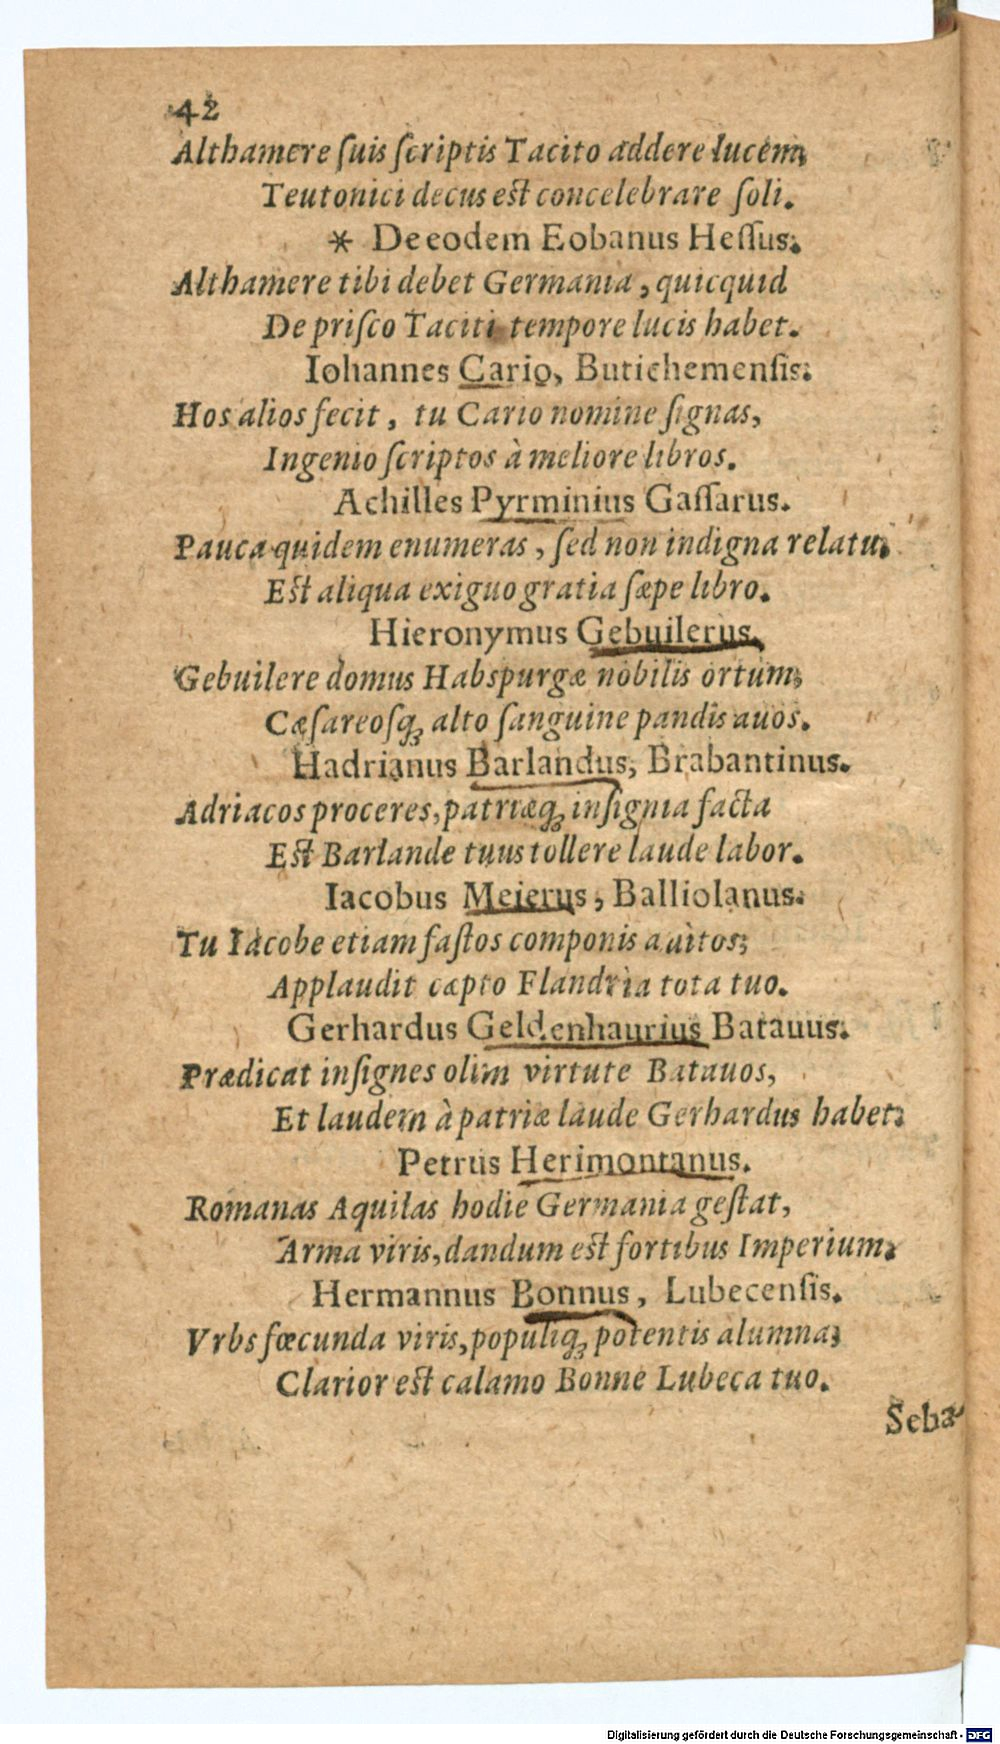 42
Althamere ſuis ſcriptis Tacito addere lucem,
Teutonici decus est concelebrare ſoli.
* De eodem Eobanus Heſſus.
Althamere tibi debet Germania, quicquid
De priſco Taciti tempore lucis habet.
Iohannes Cario, Butichemenſis.
Hos alios fecit, tu Cario nomine ſignas,
Ingenio ſcriptos à meliore libros.
Achilles Pyrminius Gaſſarus.
Pauca quidem enumeras, ſed non indigna relatu,
Est aliqua exiguo gratia ſæpe libro.
Hieronymus Gebuilerus.
Gebuilere domus Habspurgæ nobilis ortum,
Cæſareoſq; alto ſanguine pandis auos.
Hadrianus Barlandus, Brabantinus.
Adriacos proceres, patriæq; inſignia facta
Est Barlande tuus tollere laude labor.
Iacobus Meierus, Balliolanus.
Tu Iacobe etiam faſtos componis auitos;
Applaudit cæpto Flandria tota tuo.
Gerhardus Geldenhaurius Batauus.
Prædicat inſignes olim virtute Batauos,
Et laudem à patriæ laude Gerhardus habet.
Petrus Herimontanus.
Romanas Aquilas hodie Germania geſtat,
Arma viris, dandum est fortibus Imperium.
Hermannus Bonnus, Lubecenſis.
Vrbs fœcunda viris, populiq; potentis alumna;
Clarior est calamo Bonne Lubeca tuo.
Seba-
Digitalisierung gefördert durch die Deutsche Forschungsgemeinschaft - DFG